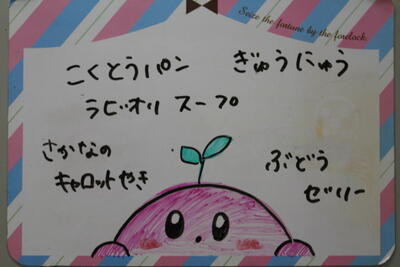 Seize the fortune by the forelock.
こくとうパン ぎゅうにゅう
ラビオリ スープ
さかなの
キャロットやき
ぶどう
ゼリー